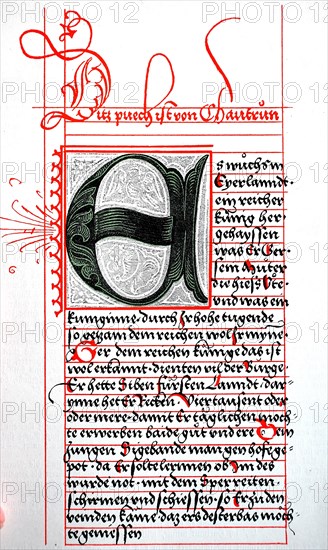 Ditz puech ist von Chautrun
Es wuchs in
Eyerlanndt·
ein reicher
kúnig her·
gehayssen
was Er Ger·
sein Můter
die hiess Ůte·
vnd was ein
kuniginne· durch Ir hohe tugende
so gezam dem reichen wol Ir mynne·
Ger dem reichen kúnige das ist
wol erkant· dienten vil der Burge
Er hette Siben fúrsten Lanndt· dar·
ynne het Er Recken Viertausent oder
oder mere· damit Er tägelichen moch·
te erwerben baide gůt vnd ere Dem
jungen Sigebande man gen hofe ge·
pot· da Er solte lernnen ob Im des
wurde not· mit dem Sper reiten·
schirmen vnd schiessen· so Er zu den
veinden käme· daz er es dester bas moch·
te geniessen
PHOTO12